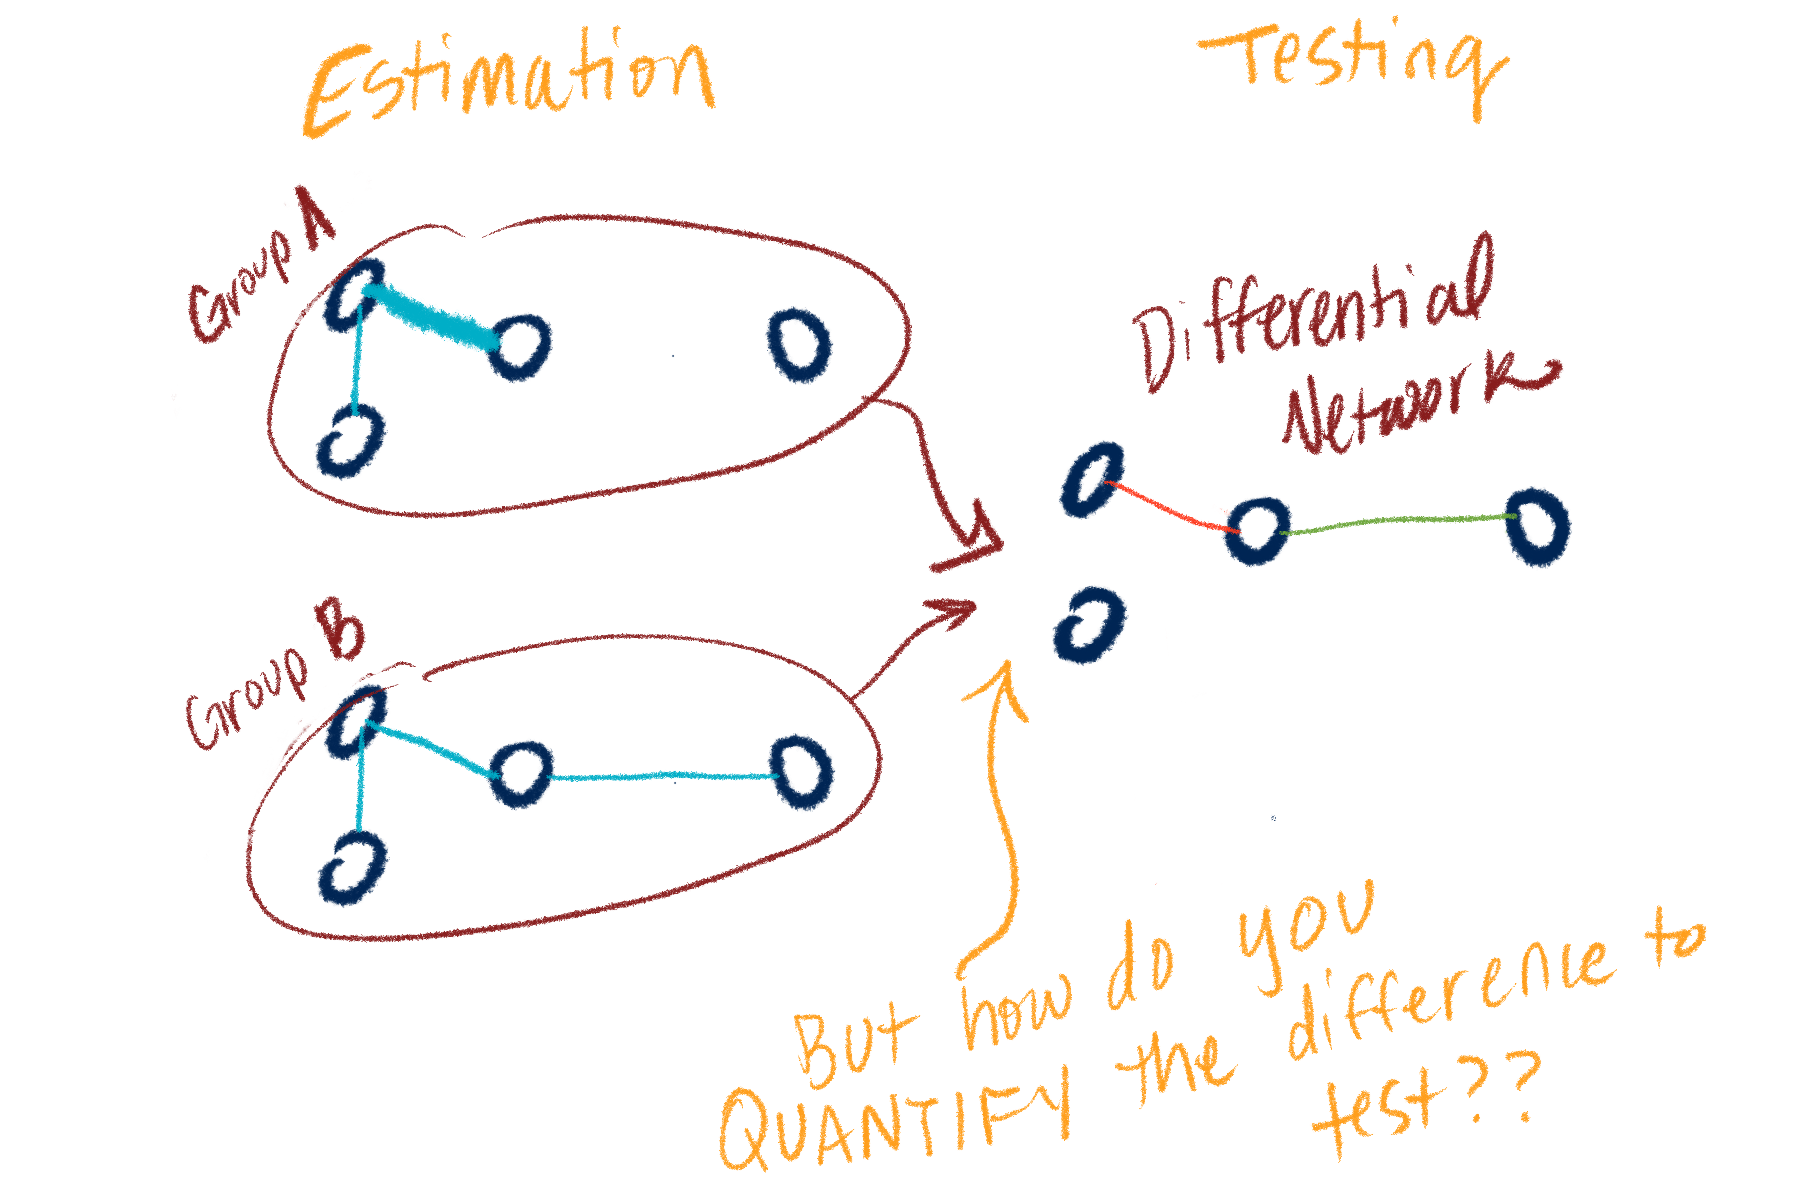 Estimation
Testing
Group A
Differential
Network
Group B
But how do you
QUANTIFY the difference to
test??